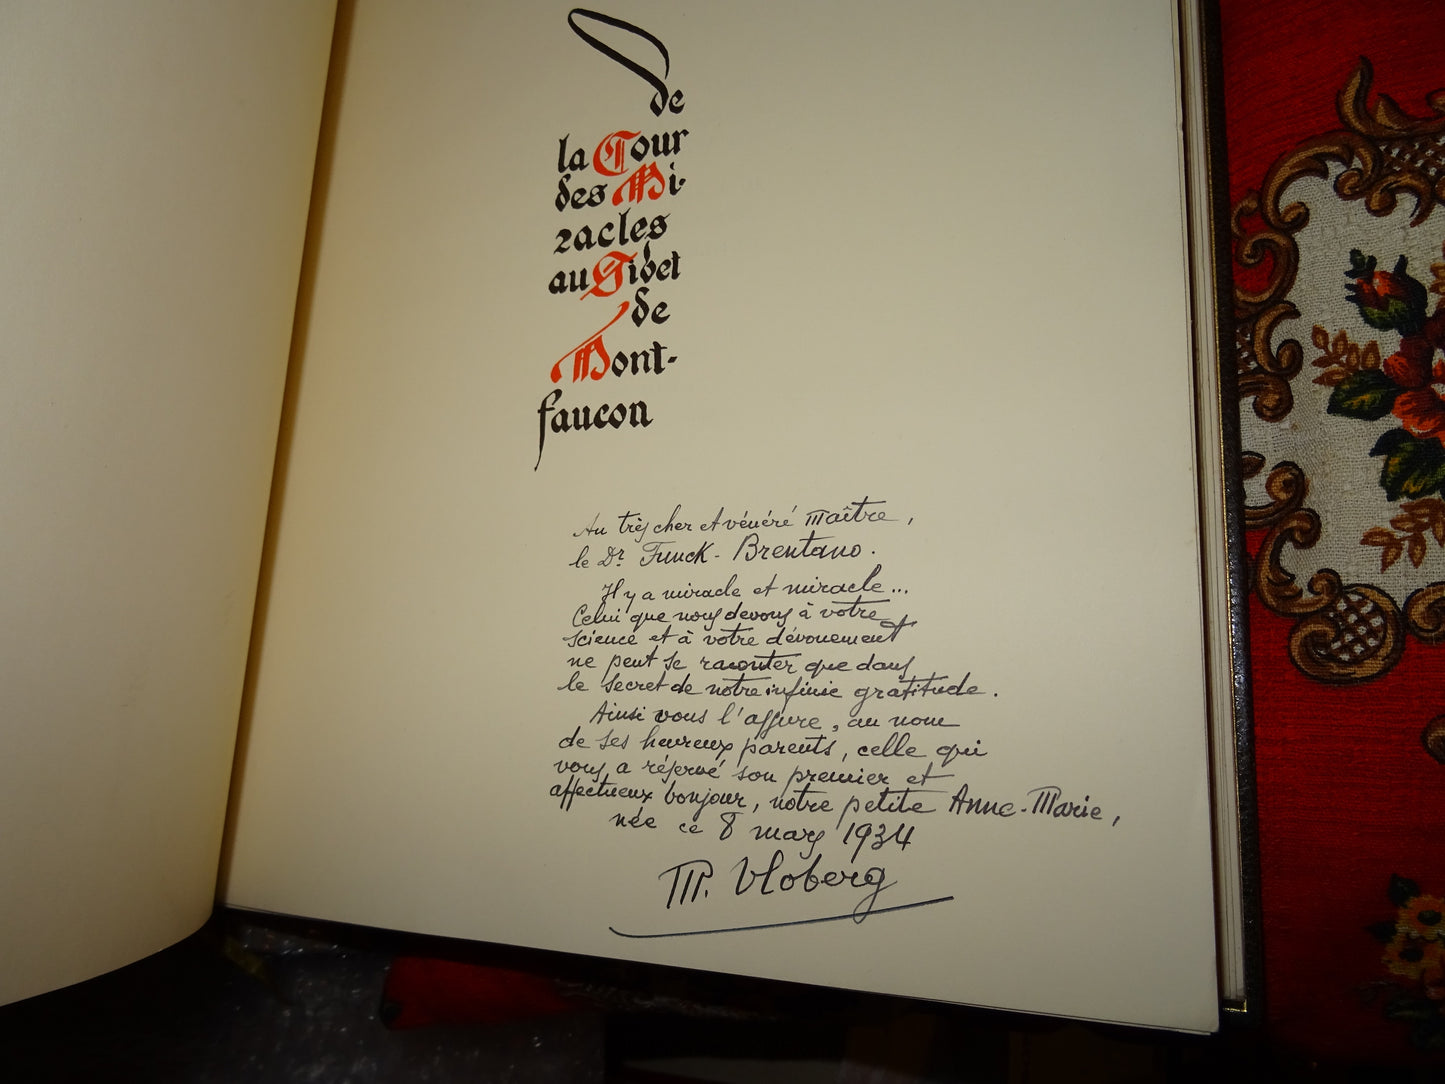 de
la Cour
des Mi-
racles
au Gibet
de
Mont-
faucon
Au très cher et vénéré Maître,
le Dr. Funck-Brentano.
Il y a miracle et miracle...
Celui que nous devons à votre
science et à votre dévouement
ne peut se raconter que dans
le secret de notre infinie gratitude.
Ainsi vous l'assure, au nom
de ses heureux parents, celle qui
vous a réservé son premier et
affectueux bonjour, notre petite Anne-Marie,
née ce 8 mars 1934
M. Vloberg